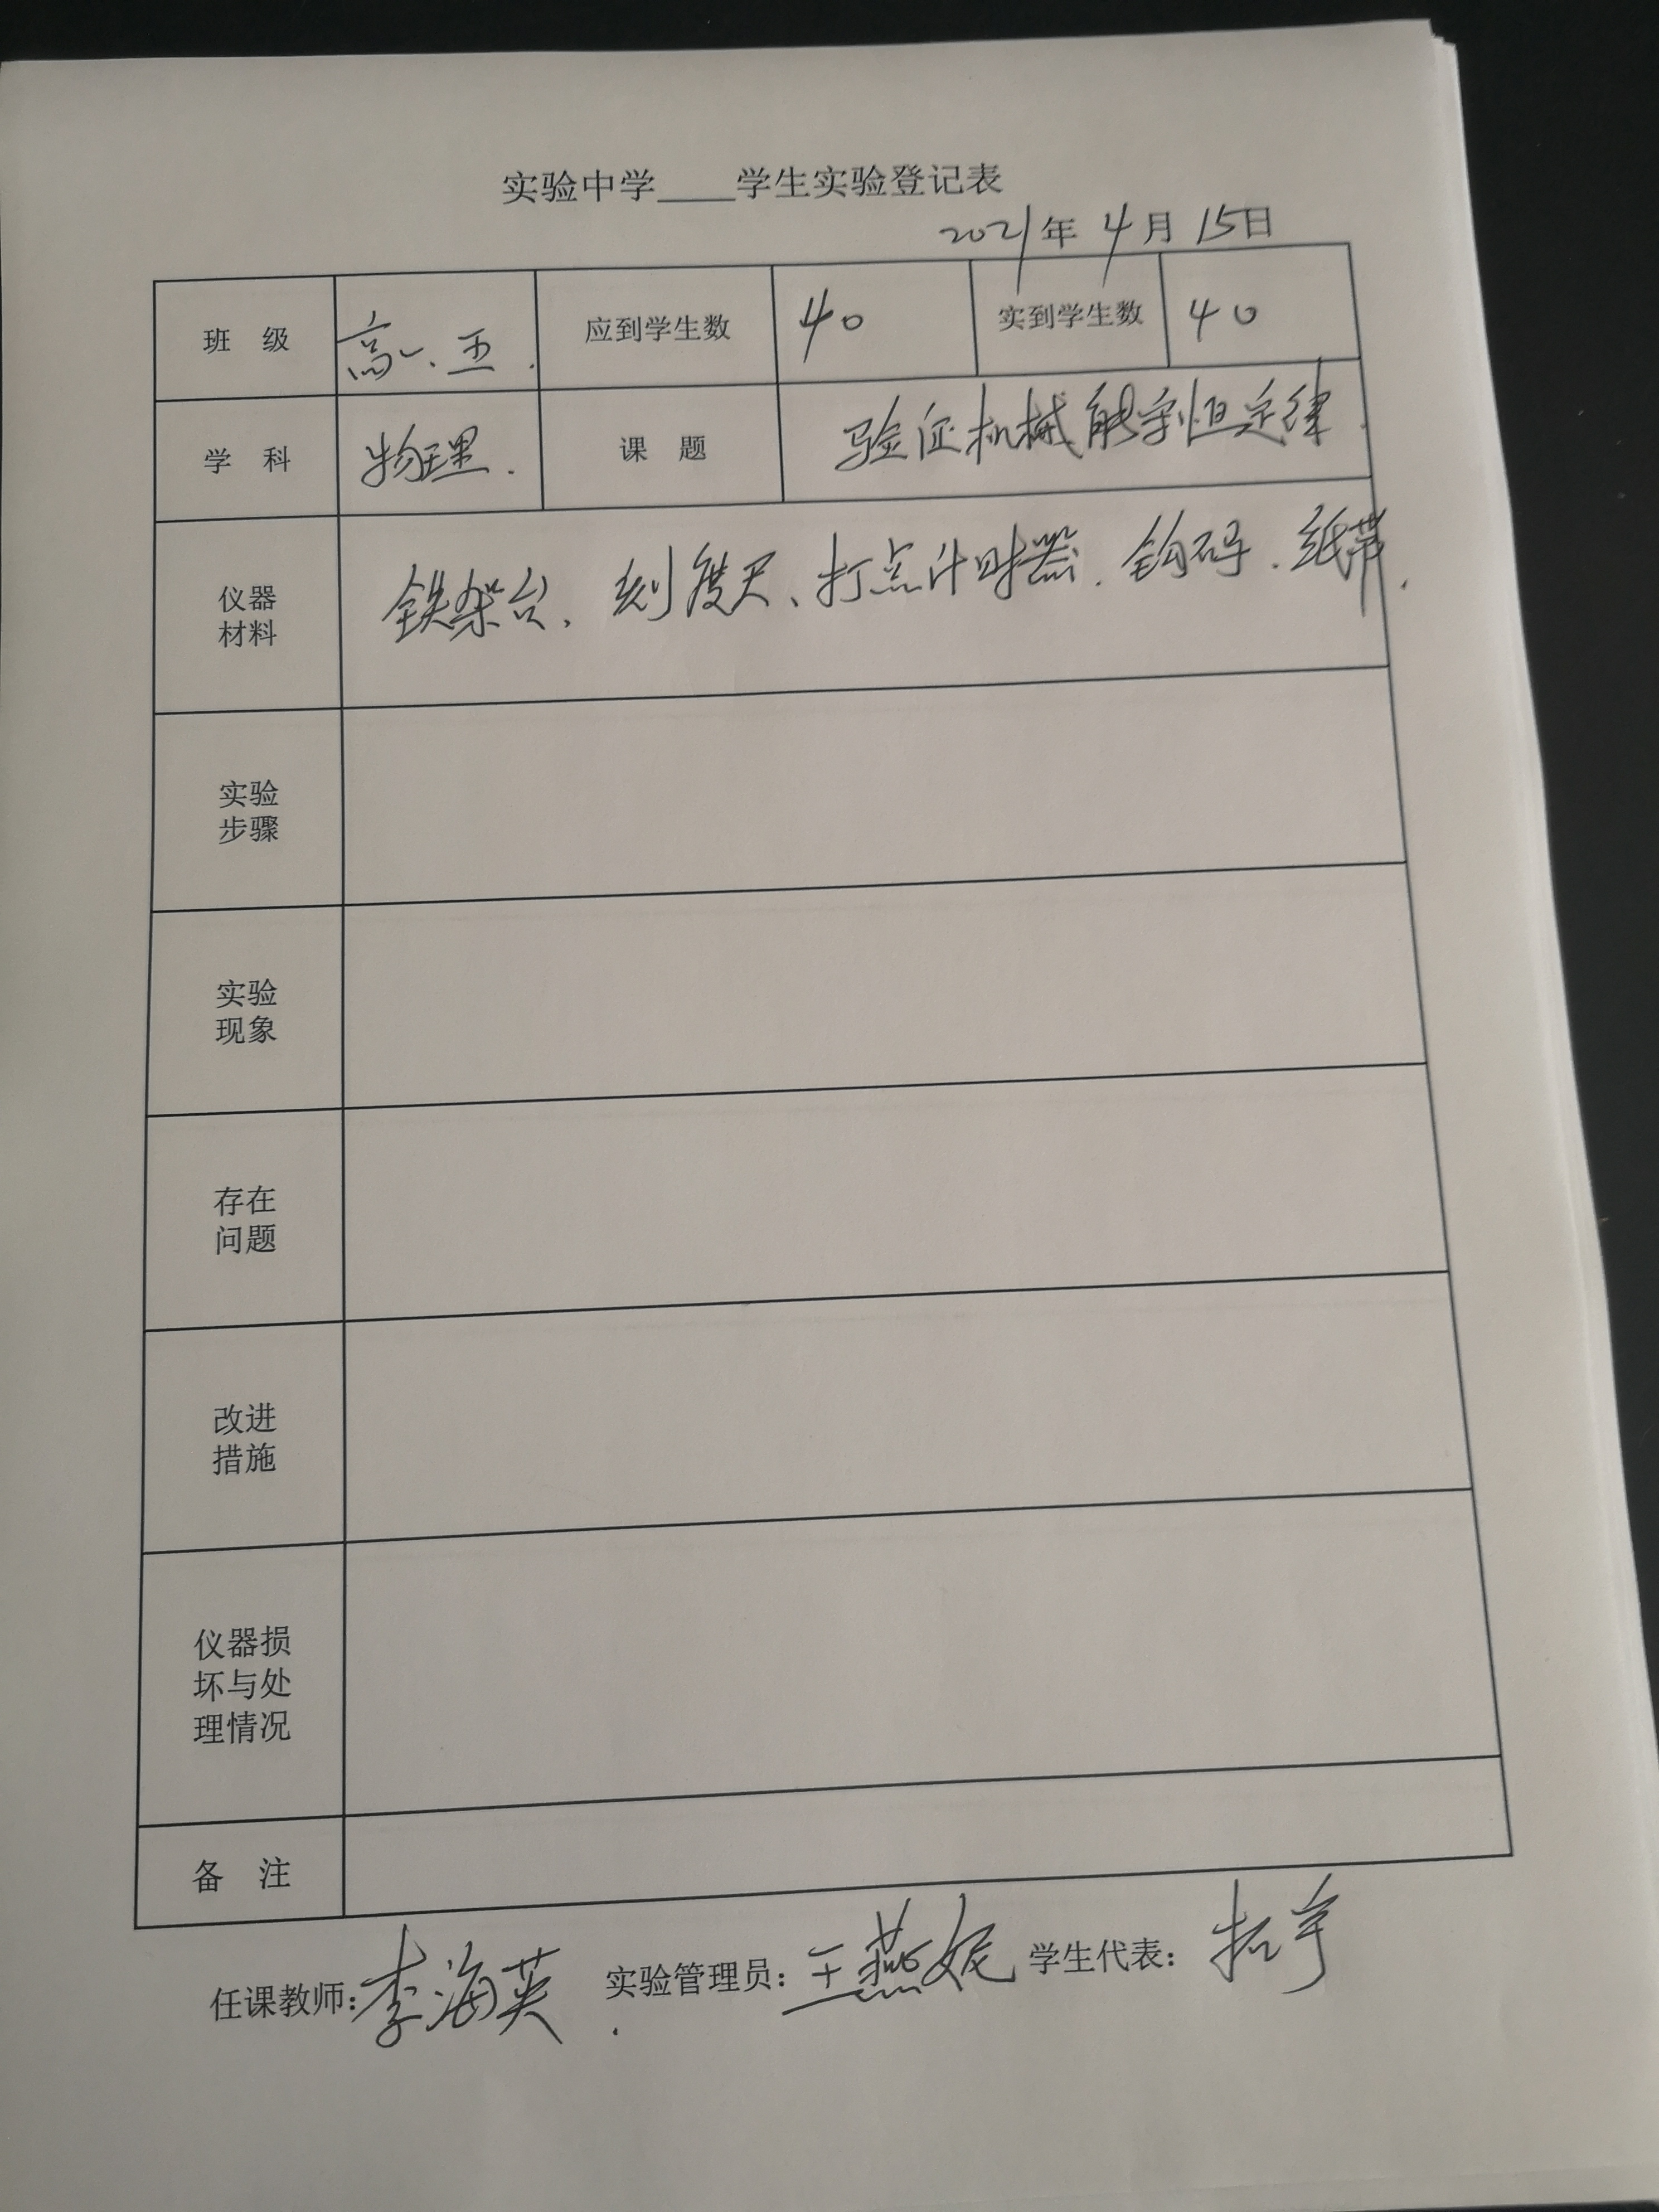 实验中学____学生实验登记表
2021年 4月 15日
班 级 高一.五. 应到学生数 40 实到学生数 40
学 科 物理. 课 题 验证机械能守恒定律.
仪器
材料
铁架台、刻度尺、打点计时器、钩码、纸带.
实验
步骤
实验
现象
存在
问题
改进
措施
仪器损
坏与处
理情况
备 注
任课教师:李海英. 实验管理员:王燕妮 学生代表:拓宇